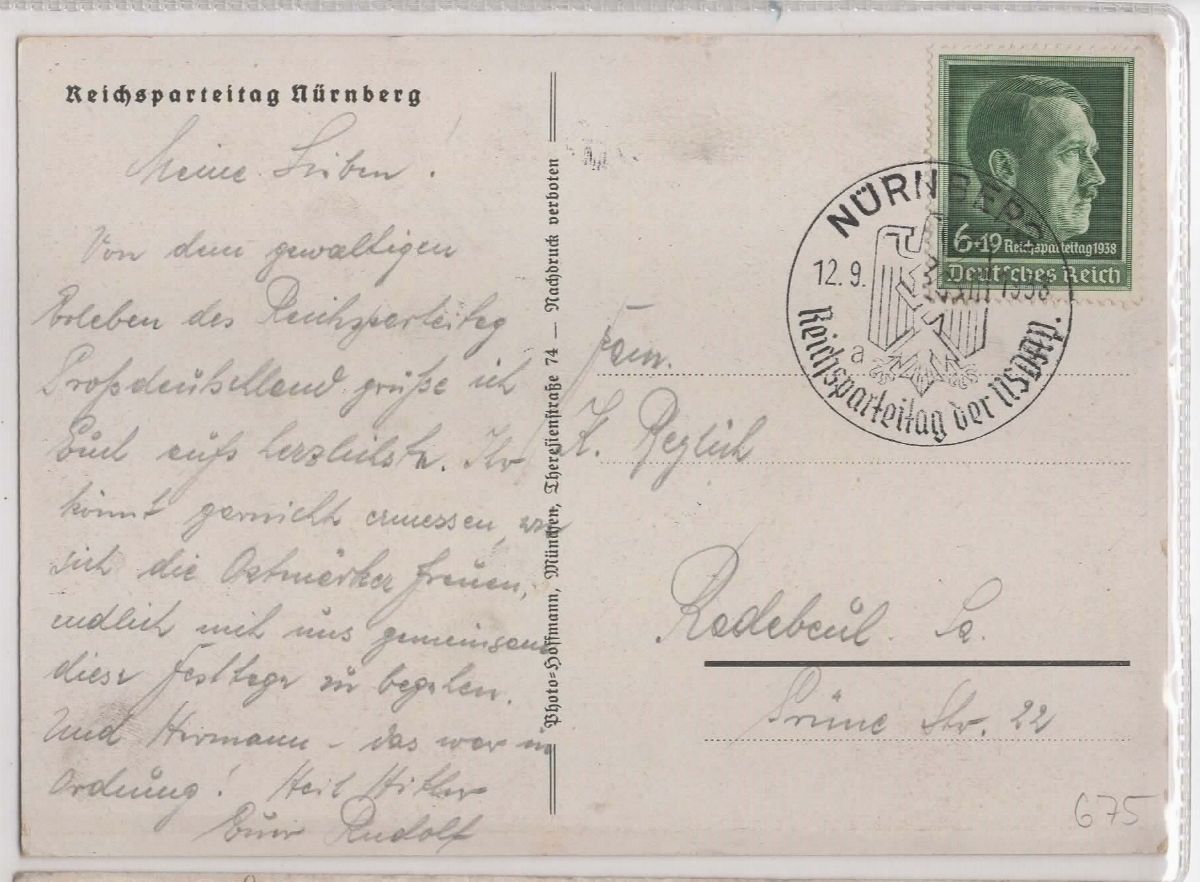 Reichsparteitag Nürnberg
Meine Lieben!
Von dem gewaltigen
Erleben des Reichsparteitag
Großdeutschland grüße ich
Euch aufs herzlichste. Ihr
könnt garnicht ermessen, wie
sich die Ostmärker freuen,
endlich mit uns gemeinsam
diese Festtage zu begehen.
Und Hermann – das war in
Ordnung! Heil Hitler
Euer Rudolf
Photo=Hoffmann, München, Theresienstraße 74 — Nachdruck verboten
6+19 Reichsparteitag 1938
Deutsches Reich
NÜRNBERG
12.9. 1938
a
Reichsparteitag der NSDAP.
Fam.
K.
Radebeul Sa.
Grüne Str. 22
675